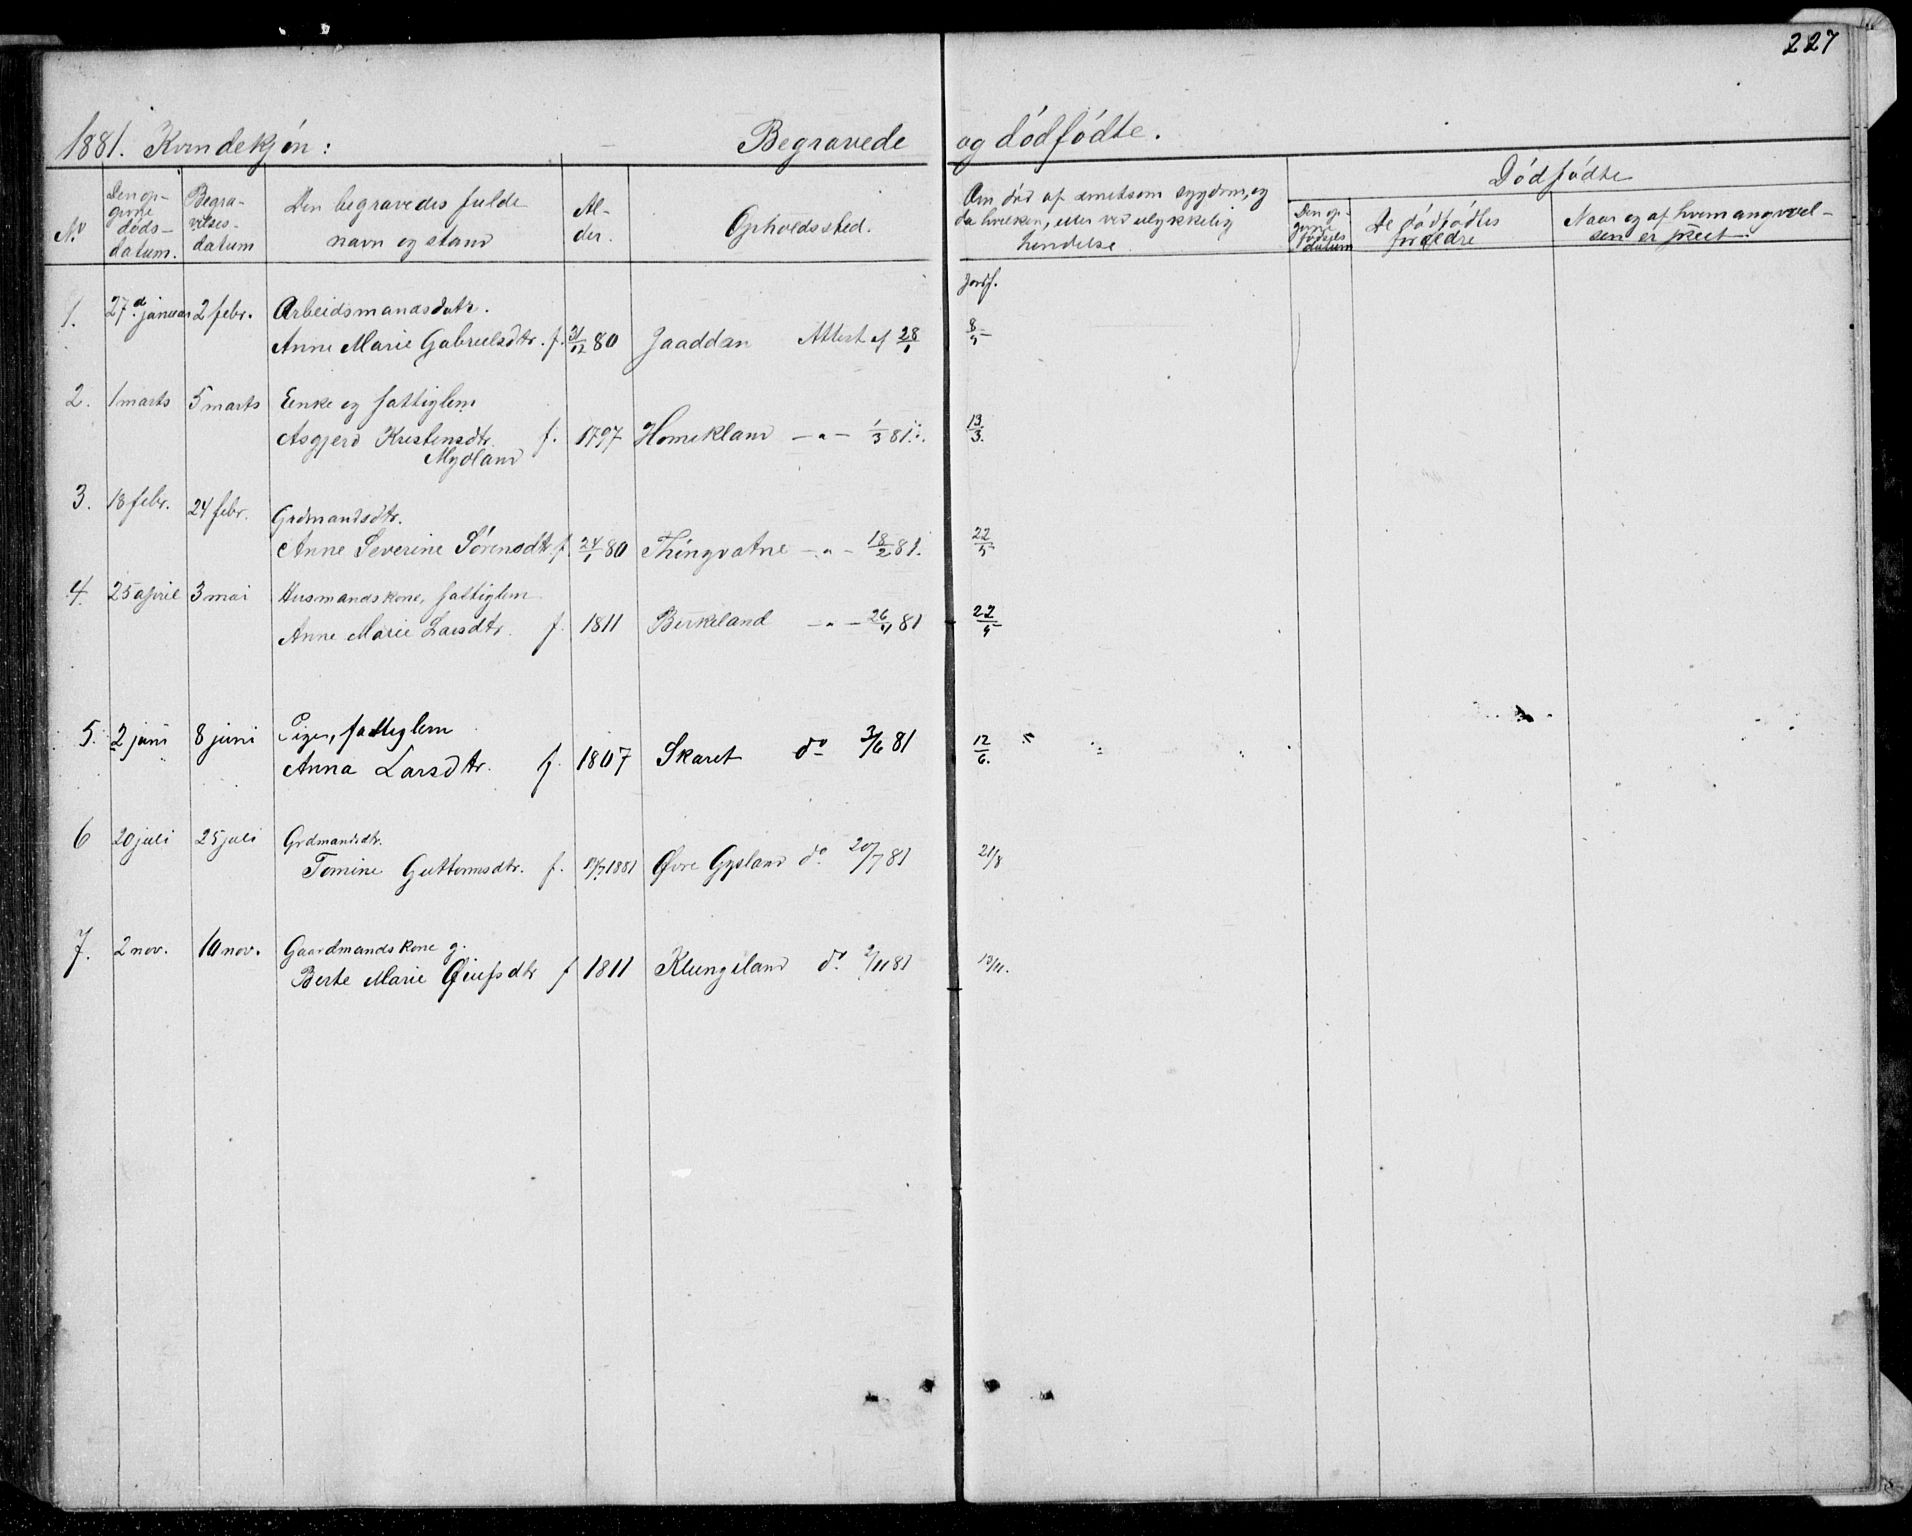 227
1881. Kvindekjøn: Begravede og dødfødte.
No
Den op-
givne
døds-
datum.
Begra-
velses-
datum
Den begravedes fulde
navn og stand
Al-
der.
Opholdssted.
Om død af smitsom sygdom, og
da hvilken, eller ved ulykkelig
hendelse.
Dødfødte
Den op-
givne
fødsels
datum
De dødfødtes
forældre
Naar og af hvem angivel-
sen er skeet.
Jordf.
1. 27d januar 2 febr. Arbeidsmandsdatr.
Anne Marie Gabrielsdtr. f. 31/12 80 Jaaddan Attest af 28/1 8/5
2. 1 marts 5 marts Enke og fattiglem
Asgjerd Kristensdtr. f. 1797 Homekland -"- 1/3 81. 13/3.
Mydland
3. 18 febr. 24 febr. Grdmandsdtr.
Anne Severine Sørensdtr f. 24/1 80 Thingvatne -"- 18/2 81. 22/5
4. 25 april 3 mai Husmandskone, fattiglem
Anne Marie Larsdtr. f. 1811 Birkeland -"- 26/4 81 22/5
5. 2 juni 8 juni Pige, fattiglem
Anna Larsdtr. f. 1807 Skaret do 3/6 81 12/6.
6 20 juli 25 juli Grdmandsdtr.
Tomine Guttormsdtr. f. 1881 Øvre Gysland do. 20/7 81 21/8
7. 2 nov. 10 nov. Gaardmandskone g.
Berte Marie Øiufsdtr f 1811 Klungeland do. 2/11 81 13/11.